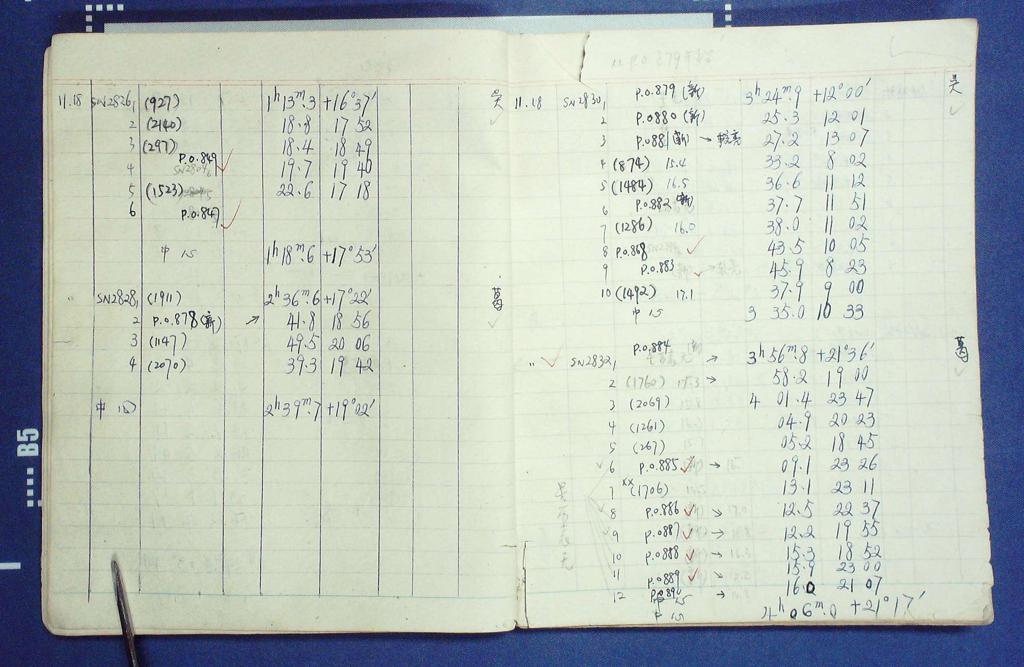 11.18 SN2826,1 (927) 1h13m.3 +16°37′ 吴
2 (2140) 18.8 17 52
3 (297) 18.4 18 49
4 P.O.849 19.7 19 40
5 (1523) 22.6 17 18
6 P.O.847
中 15 1h18m.6 +17°53′
SN2828,1 (1911) 2h36m.6 +17°22′ 葛
2 P.O.878(新) → 41.8 18 56
3 (1147) 49.5 20 06
4 (2070) 39.3 19 42
中 15 2h39m.7 +19°02′
11.18 SN2830,1 P.O.879 (新) 3h24m.9 +12°00′ 吴
2 P.O880 (新) 25.3 12 01
3 P.O881 (新) → 27.2 13 07
4 (874) 15.4 33.2 8 02
5 (1484) 16.5 36.6 11 12
6 P.O.882 (新) 37.7 11 51
7 (1286) 16.0 38.0 11 02
8 P.O.868 43.5 10 05
9 P.O.883 45.9 8 23
10 (1492) 17.1 37.9 9 00
中 15 3 35.0 10 33
" SN2832,1 P.O.884 → 3h56m.8 +21°36′ 葛
2 (1760) 17.3 → 58.2 19 00
3 (2069) 4 01.4 23 47
4 (1261) 04.9 20 23
5 (267) 05.2 18 45
6 P.O.885 → 09.1 23 26
7 xx(1706) 13.1 23 11
8 P.O.886 → 12.5 22 37
9 P.O887 → 12.2 19 55
10 P.O888 → 15.3 18 52
11 P.O889 → 15.9 23 00
12 → 16.0 21 07
中 15 4h06m.0 +21°17′
B5